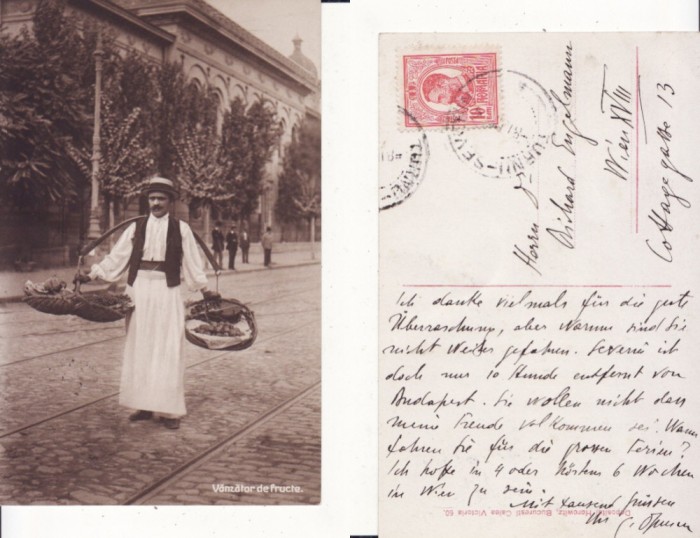 Vânzător de fructe.
10
TURNU-SEVERIN
Herrn Dr
Richard Engelmann
Wien XVIII
Cottagegasse 13
Ich danke vielmals für die gute
Überraschung, aber warum sind Sie
nicht weiter gefahren. Severin ist
doch nur 10 Stunde entfernt von
Budapest. Sie wollen nicht dass
meine Freude vollkommen sei. Wann
fahren Sie für die grossen Ferien?
Ich hoffe in 4 oder höstens 6 Wochen
in Wien zu sein.
Mit tausend Grüssen
Ihr
Depositul Horowitz, Bucuresti Calea Victoria 50.